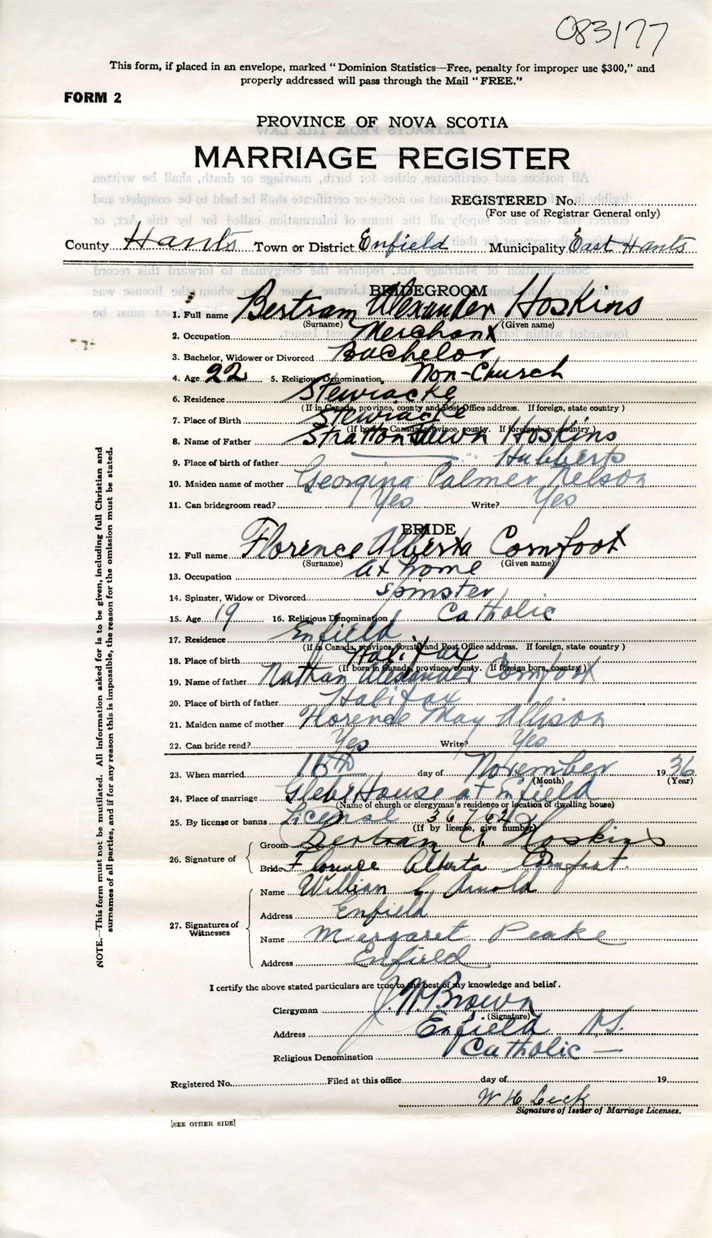 083177
This form, if placed in an envelope, marked "Dominion Statistics—Free, penalty for improper use $300," and
properly addressed will pass through the Mail "FREE."
FORM 2
PROVINCE OF NOVA SCOTIA
MARRIAGE REGISTER
REGISTERED No.
(For use of Registrar General only)
County Hants Town or District Enfield Municipality East Hants
BRIDEGROOM
1. Full name Bertram Alexander Hoskins
(Surname) (Given name)
2. Occupation Merchant
3. Bachelor, Widower or Divorced Bachelor
4. Age 22 5. Religious Denomination Non-Church
6. Residence Stewiacke
(If in Canada, province, county and Post Office address. If foreign, state country)
7. Place of Birth Stewiacke
(If born in Canada, province, county. If foreign born, country)
8. Name of Father Stratton Hoskins
9. Place of birth of father Hubberts
10. Maiden name of mother Georgina Palmer Nelson
11. Can bridegroom read? Yes Write? Yes
BRIDE
12. Full name Florence Alberta Comfoot
(Surname) (Given name)
13. Occupation at home
14. Spinster, Widow or Divorced Spinster
15. Age 19 16. Religious Denomination Catholic
17. Residence Enfield
(If in Canada, province, county and Post Office address. If foreign, state country)
18. Place of birth Halifax
(If born in Canada, province, county. If foreign born, country)
19. Name of father Nathan Alexander Comfoot
20. Place of birth of father Halifax
21. Maiden name of mother Florence May Allison
22. Can bride read? Yes Write? Yes
23. When married 16th day of November 1936
(Month) (Year)
24. Place of marriage Glebe House at Enfield
(Name of church or clergyman's residence or location of dwelling house)
25. By license or banns License 36764
(If by license, give number)
26. Signature of Groom Bertram A Hoskins
Bride Florence Alberta Comfoot
27. Signatures of Witnesses
Name William E Arnold
Address Enfield
Name Margaret Peake
Address Enfield
I certify the above stated particulars are true to the best of my knowledge and belief.
Clergyman J. W. Brown
(Signature)
Address Enfield N.S.
Religious Denomination Catholic
Registered No. Filed at this office day of 19
W H Leck
Signature of Issuer of Marriage Licenses.
[SEE OTHER SIDE]
NOTE.—This form must not be mutilated. All information asked for is to be given, including full Christian and
surnames of all parties, and if for any reason this is impossible, the reason for the omission must be stated.